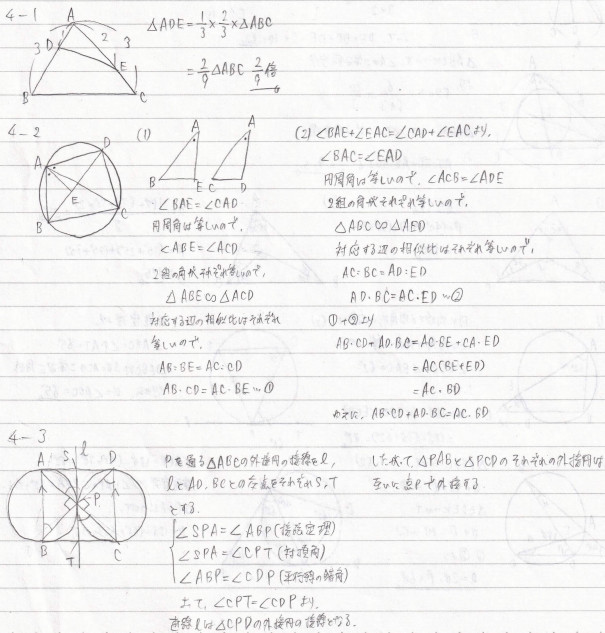 4-1
A
D
1
2
3
3
E
B
C
△ADE = 1/3 × 2/3 × △ABC
= 2/9 △ABC 2/9倍
4-2
A
D
E
B
C
(1)
A
B
E
A
C
D
∠BAE = ∠CAD
円周角は等しいので,
∠ABE = ∠ACD
2組の角がそれぞれ等しいので,
△ABE∽△ACD
対応する辺の相似比はそれぞれ
等しいので,
AB:BE = AC:CD
AB・CD = AC・BE …①
(2) ∠BAE+∠EAC=∠CAD+∠EACより,
∠BAC=∠EAD
円周角は等しいので, ∠ACB=∠ADE
2組の角がそれぞれ等しいので,
△ABC∽△AED
対応する辺の相似比はそれぞれ等しいので,
AC:BC = AD:ED
AD・BC=AC・ED …②
①+②より
AB・CD+AD・BC=AC・BE+CA・ED
=AC(BE+ED)
=AC・BD
ゆえに, AB・CD+AD・BC=AC・BD
4-3
A
S
l
D
P
B
T
C
Pを通る△ABCの外接円の接線をl,
lとAD,BCとの交点をそれぞれS,T
とする.
∠SPA=∠ABP(接弦定理)
∠SPA=∠CPT(対頂角)
∠ABP=∠CDP(平行線の錯角)
よって, ∠CPT=∠CDPより,
直線lは△CPDの外接円の接線となる.
したがって, △PABと△PCDのそれぞれの外接円は
互いに点Pで外接する.